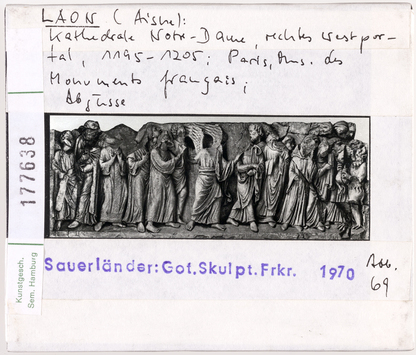 LAON (Aisne):
Kathedrale Notre-Dame, rechtes Westpor-
tal, 1195-1205; Paris, Mus. des
Monuments français;
Abgüsse
177638
Kunstgesch.
Sem. Hamburg
Sauerländer: Got. Skulpt. Frkr. 1970 Abb.
69